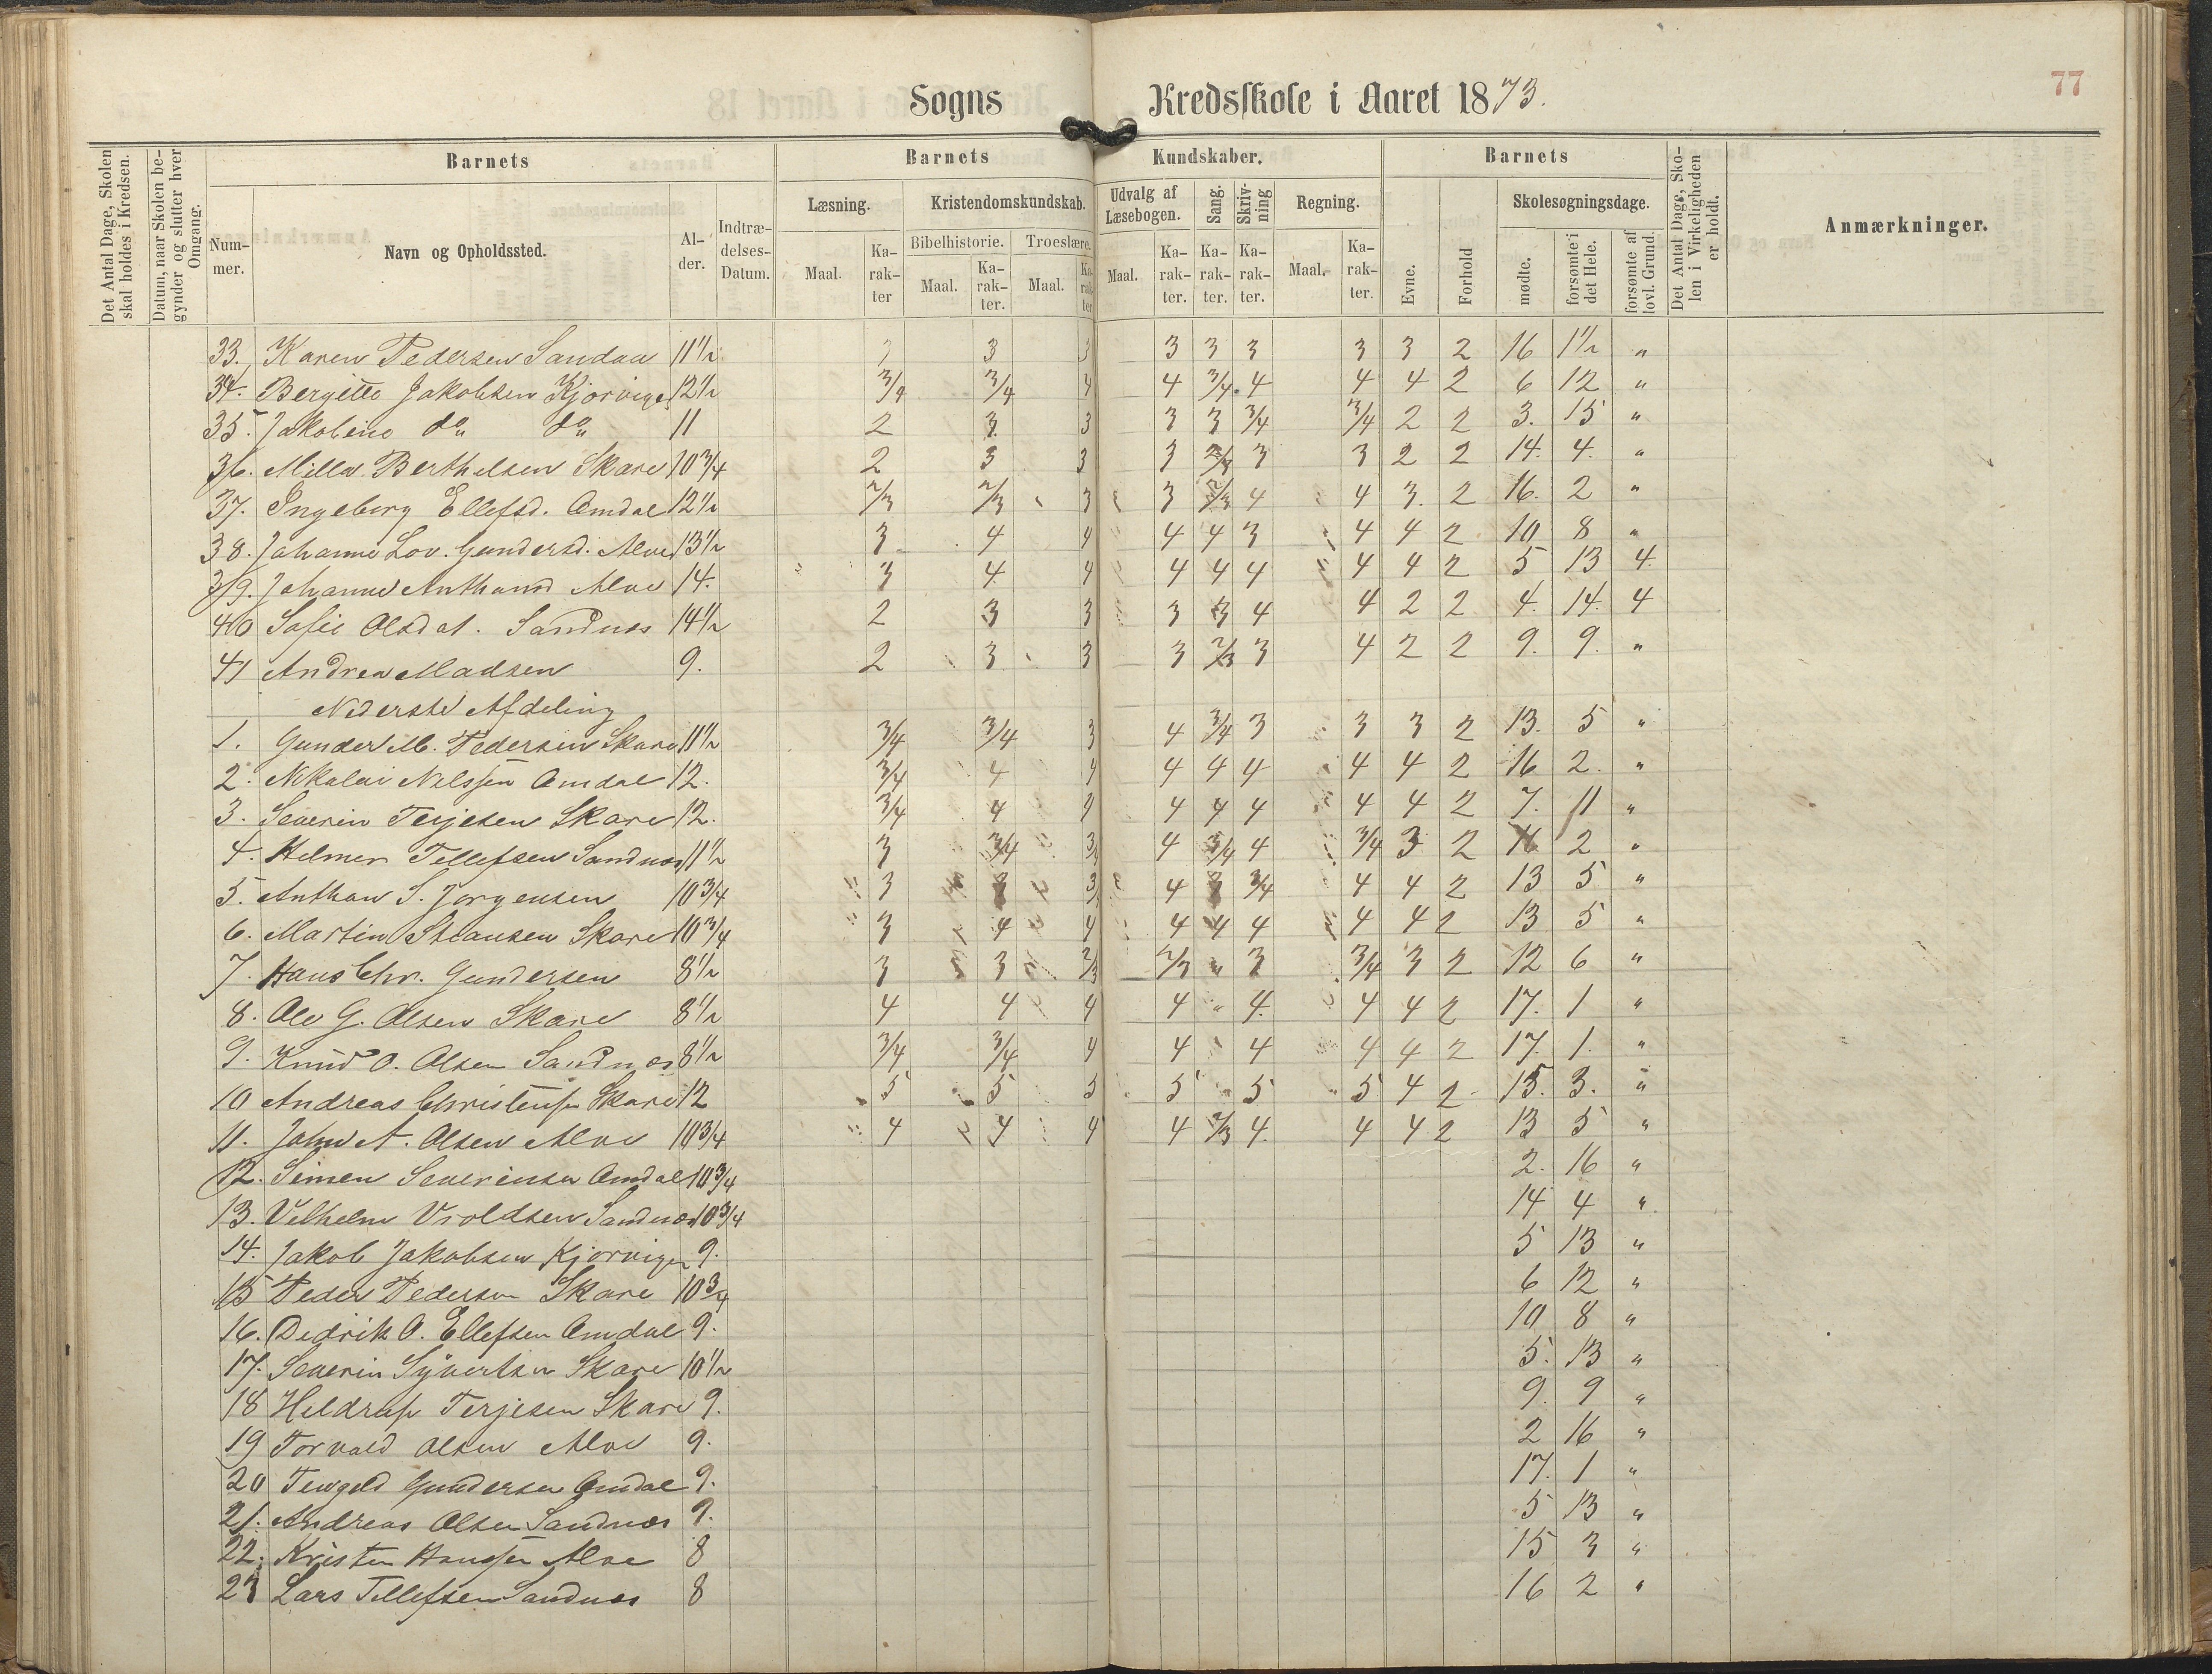 77
Sogns Kredsskole i Aaret 1873.
Det Antal Dage, Skolen skal holdes i Kredsen.
Datum, naar Skolen begynder og slutter hver Omgang.
Barnets
Nummer.
Navn og Opholdssted.
Alder.
Indtrædelses-Datum.
Barnets Kundskaber.
Læsning.
Maal.
Karakter
Kristendomskundskab.
Bibelhistorie.
Maal.
Karakter.
Troeslære.
Maal.
Karakter
Udvalg af Læsebogen.
Maal.
Karakter.
Sang.
Karakter.
Skrivning
Karakter.
Regning.
Maal.
Karakter.
Barnets
Evne.
Forhold
Skolesøgningsdage.
mødte.
forsømte i det Hele.
forsømte af lovl. Grund.
Det Antal Dage, Skolen i Virkeligheden er holdt.
Anmærkninger.
33. Karen Pedersen Sandaa 11½ 3 3 3 3 3 3 3 3 2 16 1½ "
34. Bergitte Jakobsen Kjorvigen 12½ 3/4 3/4 4 4 3/4 4 4 4 2 6 12 "
35. Jakobine do do 11 2 3 3 3 3 3/4 3/4 2 2 3. 15 "
36. Milla Berthelsen Skare 10¾ 2 3 3 3 2/3 3 3 2 2 14. 4. "
37. Ingeborg Ellefsd. Omdal 12½ 2/3 2/3 3 3 2/3 4 4 3. 2 16. 2 "
38. Johanne Lov. Gundersd. Alve 13½ 3 4 4 4 4 3 4 4 2 10 8 "
39. Johanne Anthond Alve 14. 3 4 4 4 4 4 4 4 2 5 13 4.
40 Sofie Olsdat. Sandnes 14½ 2 3 3 3 3 4 4 2 2 4. 14. 4
41 Andrea Madsen 9. 2 3 3 3 2/3 3 4 2 2 9. 9. "
Nederste Afdeling
1. Gunder M. Pedersen Skare 11½ 3/4 3/4 3 4 3/4 3 3 3 2 13. 5 "
2. Nikolai Nilssen Omdal 12. 3/4 4 4 4 4 4 4 4 2 16 2. "
3. Severin Terjesen Skare 12. 3/4 4 4 4 4 4 4 4 2 7. 11 "
4. Helmer Tellefsen Sandnes 11½ 3 3/4 3/4 4 3/4 4 3/4 3 2 16 2 "
5. Anthon S. Jorgensen 10¾ 3 3 4 3/4 4 4 2 13 5 "
6. Martin Skare 10¾ 3 4 4 4 4 4 4 4 2 13 5 "
7. Hans Chr. Gundersen 8½ 3 3 2/3 2/3 " 3 3/4 3 2 12 6 "
8. Ole G. Olsen Skare 8½ 4 4 4 4 " 4. 4 4 2 17. 1 "
9. Knud O. Olsen Sandnes 8½ 3/4 3/4 4 4 " 4 4 4 2 17. 1. "
10 Andreas Christensen Skare 12 5 5 5 5 " 5 5 4 2 15. 3. "
11. John A. Olsen Alve 10¾ 4 4 4 4 2/3 4. 4 4 2 13 5 "
12. Simen Severinsen Omdal 10¾ 2. 16 "
13. Vilhelm Violdsen Sandnes 10¾ 14 4 "
14. Jakob Jakobsen Kjorvigen 9. 5 13 "
15 Peder Pedersen Skare 10¾ 6 12 "
16. Didrik O. Ellefsen Omdal 9. 10 8 "
17. Severin Syvertsen Skare 10½ 5. 13 "
18 Terjesen Skare 9. 9. 9 "
19 Torvald Olsen Alve 9. 2 16 "
20 Gundersen Omdal 9. 17. 1 "
21. Andreas Olsen Sandnes 9. 5 13 "
22. Kristen Hansen Alve 8 15 3 "
23 Lars Tellefsen Sandnes 8 16 2 "